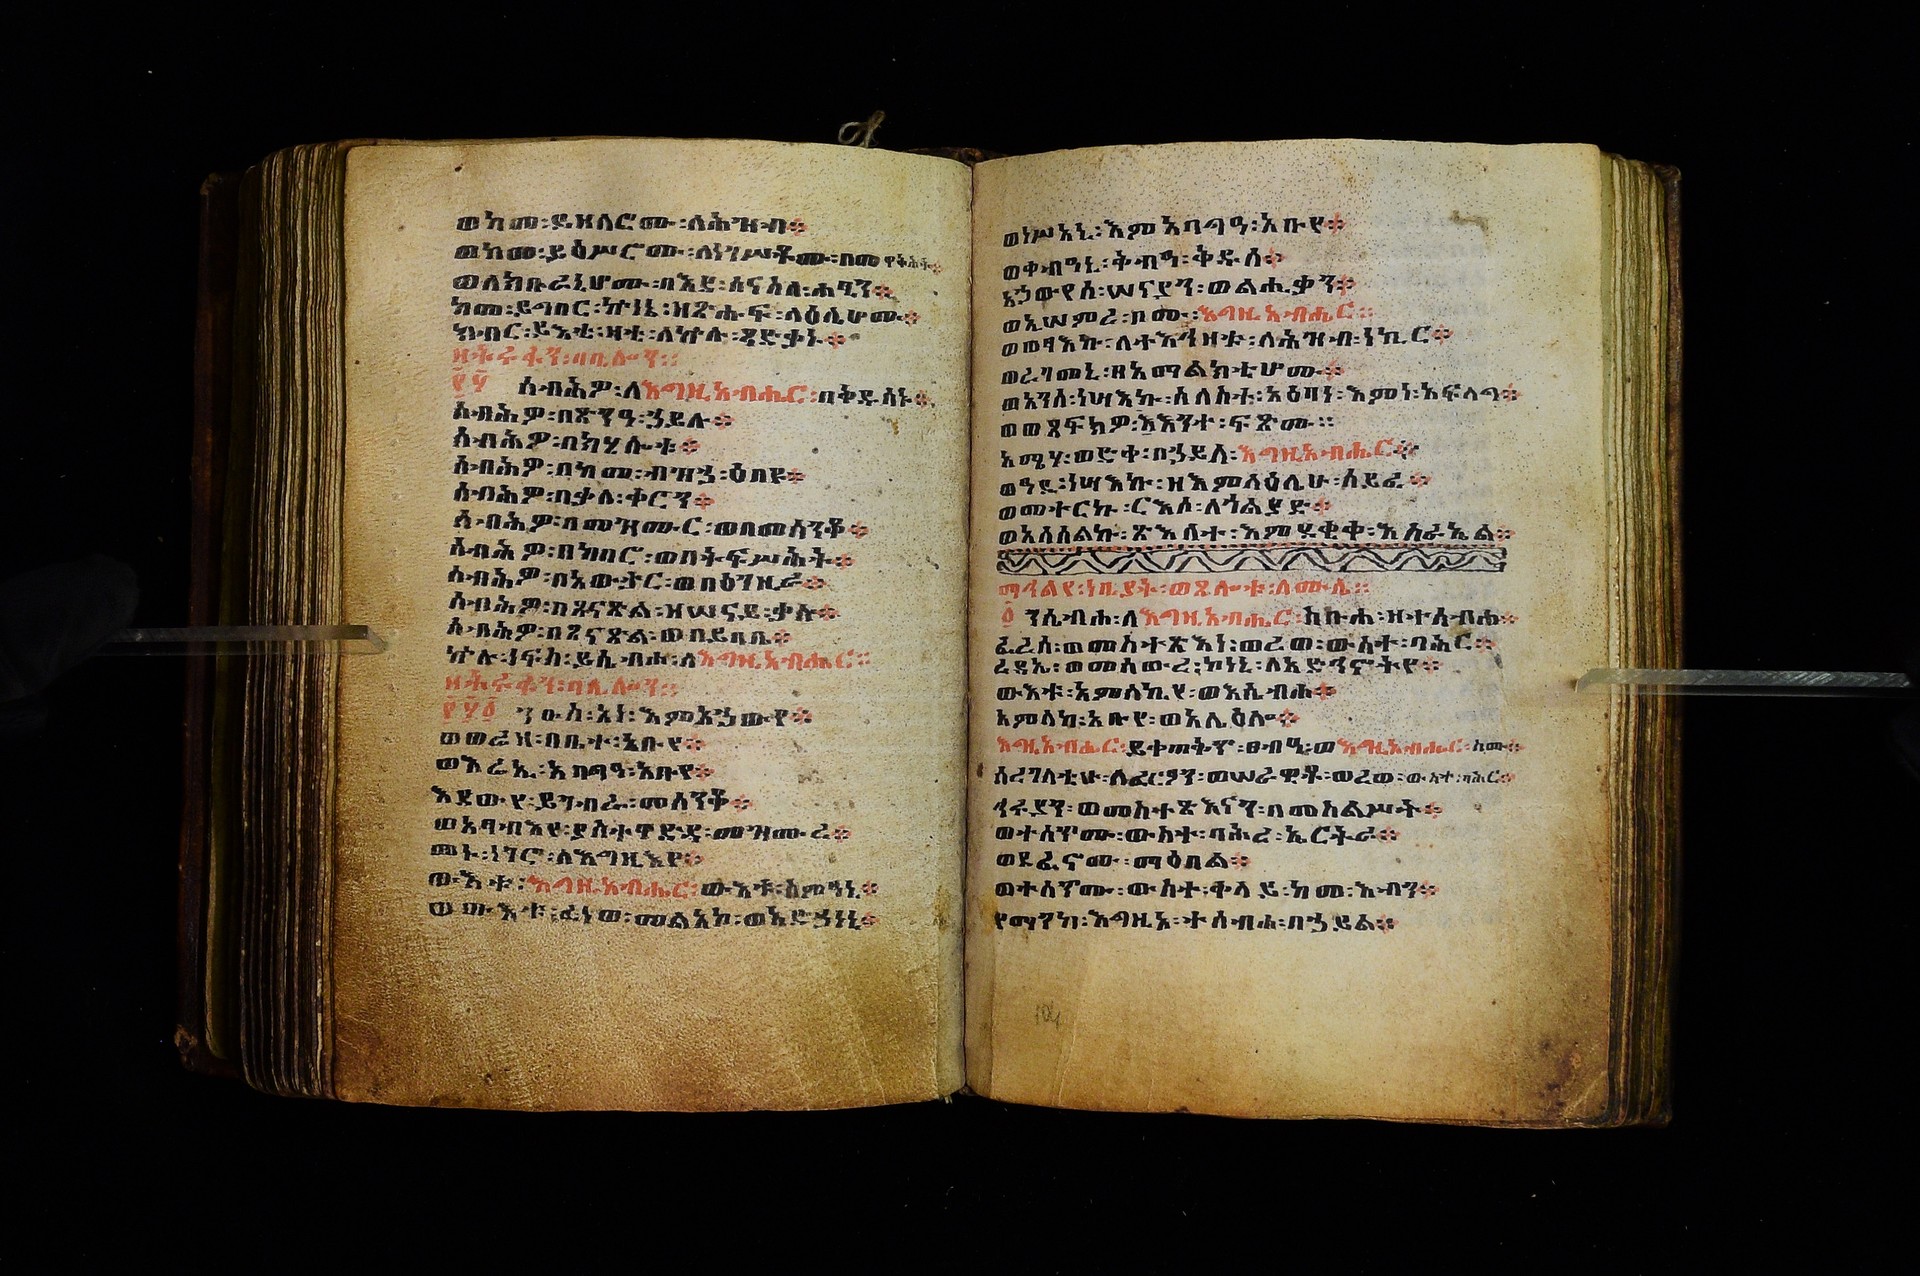 ወከመ፡ይዘለፎሙ፡ለሕዝብ፨
ወከመ፡ይዕሥሮሙ፡ለነገሥቶሙ፡በመዋቅሕት፨
ወለክቡራኒሆሙ፡በእደ፡ሰናስለ፡ሐፂን፨
ከመ፡ይግበር፡ኵነኔ፡ዘጽሑፍ፡ላዕሌሆሙ፨
ክብር፡ይእቲ፡ዛቲ፡ለኵሉ፡ጻድቃኑ፨
ዘትሩፋን፡ባቢሎን።
፻፶ ሰብሕዎ፡ለእግዚአብሔር፡በቅዱሳኑ፨
ሰብሕዎ፡በጽንዓ፡ኃይሉ፨
ሰብሕዎ፡በክሂሎቱ፨
ሰብሕዎ፡በከመ፡ብዝኃ፡ዕበዩ፨
ሰብሕዎ፡በቃለ፡ቀርን፨
ሰብሕዎ፡በመዝሙር፡ወበመሰንቆ፨
ሰብሕዎ፡በከበሮ፡ወበትፍሥሕት፨
ሰብሕዎ፡በአውታር፡ወበዕንዚራ፨
ሰብሕዎ፡በጸናጽል፡ዘሠናይ፡ቃሉ፨
ሰብሕዎ፡በጸናጽል፡ወበይባቤ፨
ኵሉ፡ነፍስ፡ይሴብሖ፡ለእግዚአብሔር።
ዘትሩፋን፡ባቢሎን።
፻፶፩ ንዑስ፡አነ፡እምአኃውየ፨
ወወሬዛ፡በቤተ፡አቡየ፨
ወእሬኢ፡አባግዓ፡አቡየ፨
እደውየ፡ይገብራ፡መሰንቆ፨
ወአፃብእየ፡ያስተዋድዳ፡መዝሙረ፨
መኑ፡ነገሮ፡ለእግዚእየ፨
ውእቱ፡እግዚአብሔር፡ውእቱ፡ሰምዓኒ፨
ወውእቱ፡ፈነወ፡መልአኮ፡ወአድኃነኒ፨
ወነሥአኒ፡እምአባግዓ፡አቡየ፨
ወቀብዓኒ፡ቅብዓ፡ቅዱሰ፨
አኃውየሰ፡ሠናያን፡ወልሒቃን፨
ወኢሠምረ፡ቦሙ፡እግዚአብሔር፨
ወወፃእኩ፡ለተእኅዞቱ፡ለሕዝብ፡ነኪር፨
ወረገመኒ፡በአማልክቲሆሙ፨
ወአንሰ፡ነሣእኩ፡ሰለስተ፡አዕባነ፡እምነ፡አፍላግ፨
ወወጸፍክዎ፡እእንተ፡ፍጽሙ።
አሜሃ፡ወድቀ፡በኃይለ፡እግዚአብሔር፨
ወዓዲ፡ነሣእኩ፡ዘእምላዕሌሁ፡ሰይፈ፨
ወመተርኩ፡ርእሰ፡ለጎልያድ፨
ወአሰሰልኩ፡ጽእለተ፡እምደቂቀ፡እስራኤል፨
ማኅልየ፡ነቢያት፡ወጸሎቱ፡ለሙሴ።
፩ ንሴብሖ፡ለእግዚአብሔር፡ስቡሐ፡ዘተሰብሐ፨
ፈረሰ፡ወመስተጽእነ፡ወረወ፡ውስተ፡ባሕር፨
ረዳኤ፡ወመሰውረ፡ኮነኒ፡ለአድኅኖትየ፨
ውእቱ፡አምላኪየ፡ወእሴብሖ፨
አምላከ፡አቡየ፡ወአሌዕሎ፨
እግዚአብሔር፡ይቀጠቅጥ፡ፀብዓ፡ወእግዚአብሔር፡ስሙ፨
ሰረገላቲሁ፡ለፈርዖን፡ወሠራዊቶ፡ወረወ፡ውስተ፡ባሕር፨
ኅሩያን፡ወመስተጽእናን፡በመስልሥት፨
ወተሰጥሙ፡ውስተ፡ባሕረ፡ኤርትራ፨
ወደፈኖሙ፡ማዕበል፨
ወተሰጥሙ፡ውስተ፡ቀላይ፡ከመ፡እብን፨
የማንከ፡እግዚኦ፡ተሰብሐ፡በኃይል፨
104